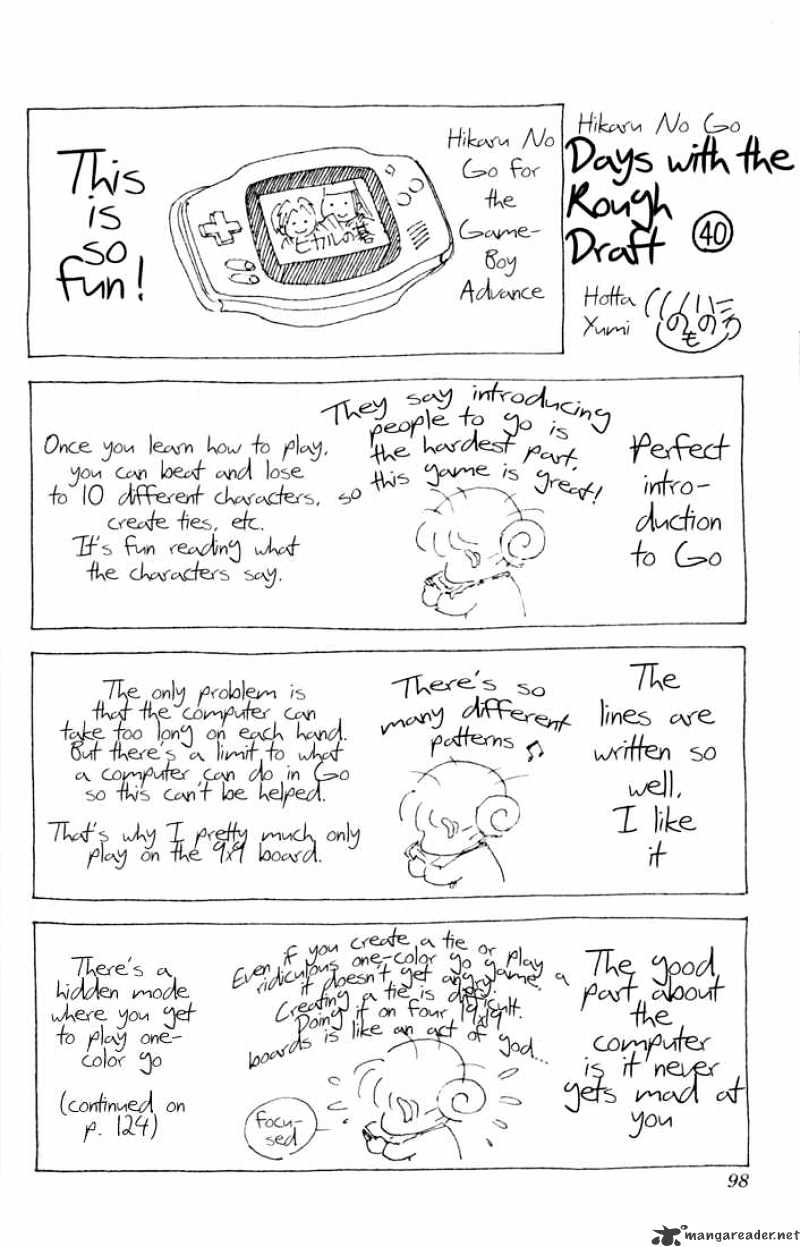 Hikaru No Go
Days with the
Rough
Draft 40
Hotta
Yumi
のものろ
Hikaru No
Go for
the
Game-
Boy
Advance
ヒカルの碁
This
is
so
fun!
Perfect
intro-
duction
to Go
They say introducing
people to go is
the hardest part,
so this game is great!
Once you learn how to play,
you can beat and lose
to 10 different characters,
create ties, etc.
It's fun reading what
the characters say.
The
lines are
written so
well,
I like
it
There's so
many different
patterns ♫
The only problem is
that the computer can
take too long on each hand.
But there's a limit to what
a computer can do in Go
so this can't be helped.
That's why I pretty much only
play on the 9x9 board.
The good
part about
the
computer
is it never
gets mad at
you
Even if you create a tie or play a
ridiculous one-color go game,
it doesn't get angry.
Creating a tie is difficult.
Doing it on four 19x19
boards is like an act of god...
focu-
sed
There's a
hidden mode
where you get
to play one-
color go
(continued on
p. 124)
98
mangareader.net